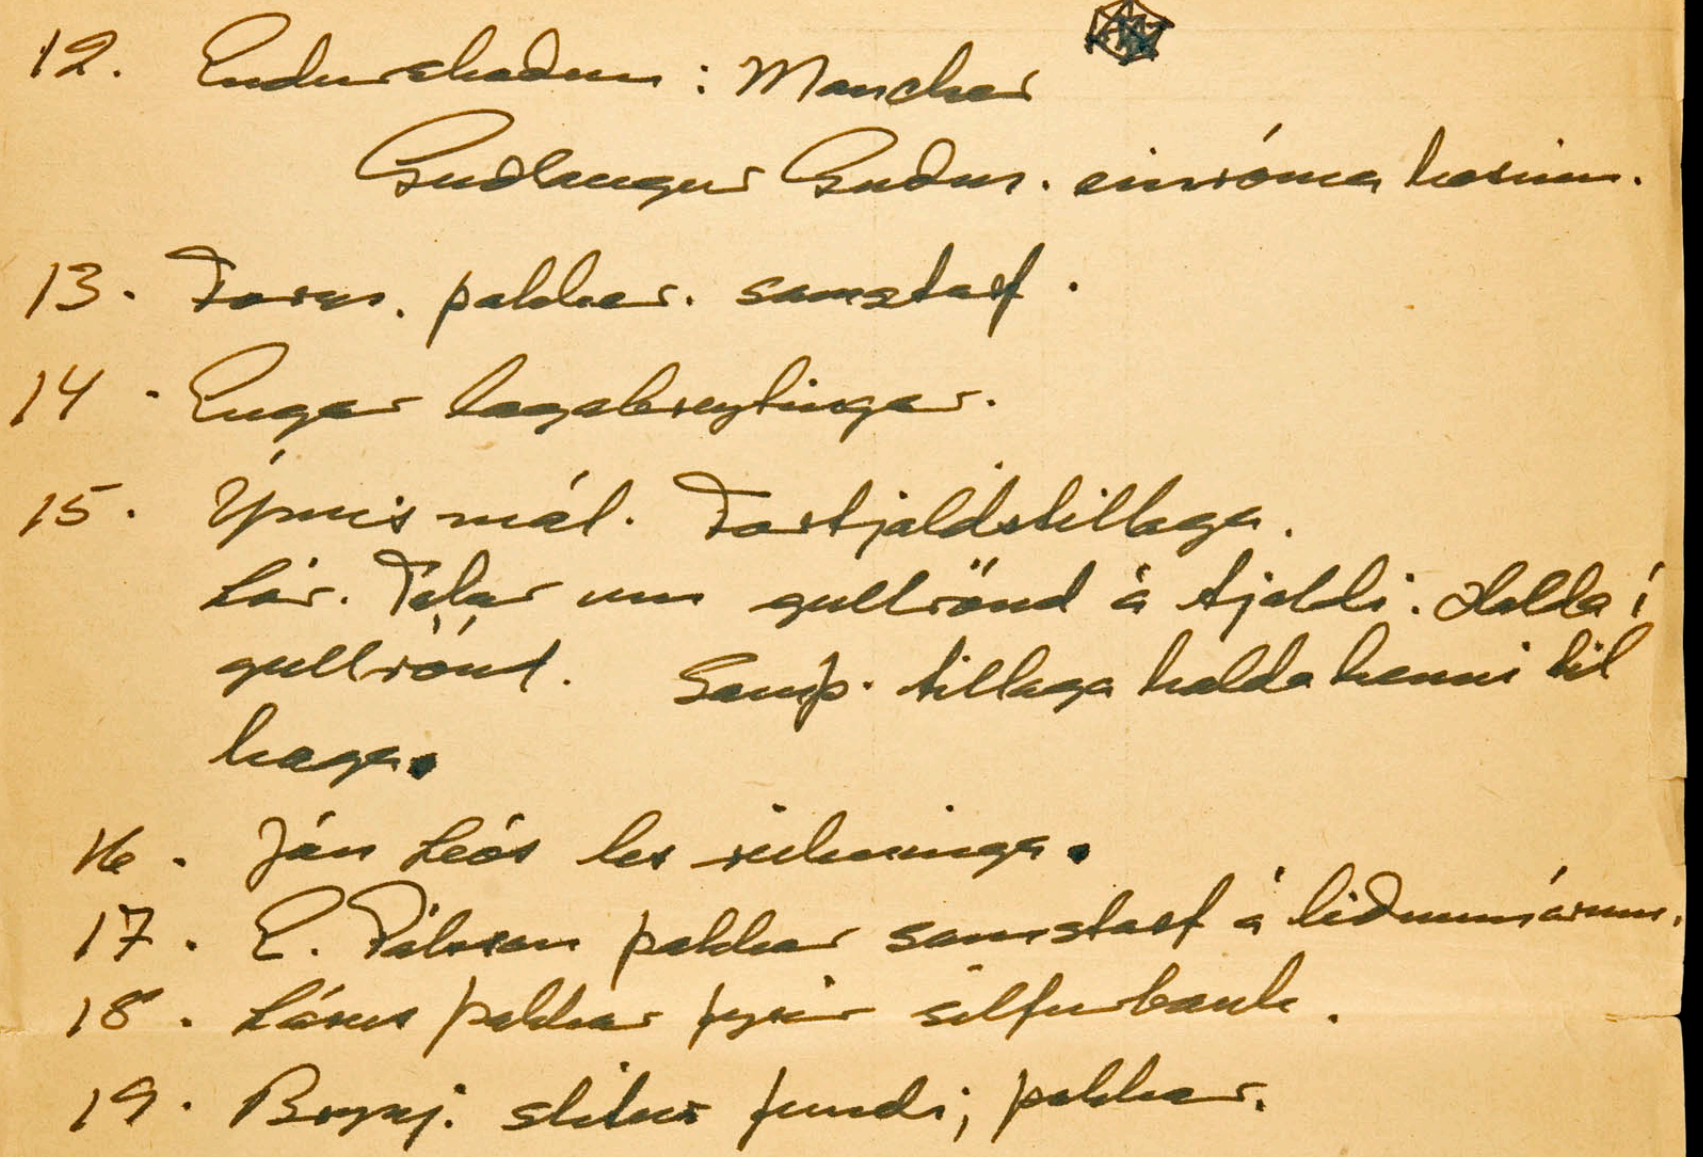 12. Endurskoðun:
Guðlaugur Guðm. einróma kosinn.
13. Form. þakkar. samstarf.
14. Engar lagabreytingar.
15. Ýmis mál. Fortjaldstillaga.
Lár. Talar um gullrönd á tjaldi. Halda í
gullrönd. Samþ. tillaga halda henni til
haga.
16. Jón Leós les reikninga.
17. E. Pálsson þakkar samstarf á liðnum árum.
18. Lárus þakkar fyrir silfurbauk.
19. Brynj. slítur fundi, þakkar.